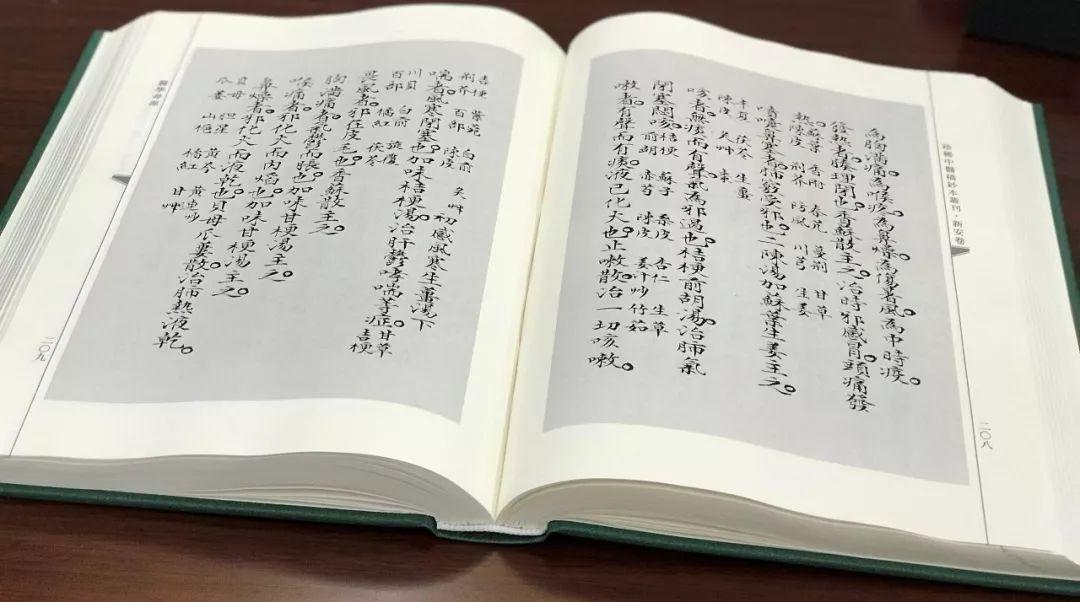 珍稀中醫稿鈔本叢刊·新安卷
為胸滿痛。為喉疼。為鼻燥。為傷暑風。為中時疫。
發熱者。腠理閉也。香蘇散主之。治時邪感冒。頭痛發
熱。蘇葉 香附 春花 蔓荆 甘草
陳皮 荆芥 防風 川芎 生姜
嚏嚏鼻塞者。肺竅受邪也。二陳湯加蘇葉生姜主之。
半夏 茯苓 生薑
陳皮 炙艸 棗
咳者。無痰而有聲。氣為邪遏也。桔梗前胡湯治肺氣
閉塞悶咳。桔梗 蘇子 桑皮 杏仁 生草
前胡 赤芍 陳皮 姜汁炒竹茹
嗽者。有聲而有痰。液已化大也。止嗽散治一切咳嗽。
二〇八
桔梗 紫菀 白前 炙艸 初感風寒生薑湯下
荆芥 百部 陳皮
喘者。風寒閉塞也。加味桔梗湯治肝鬱哮喘等症。桔梗
川貝 白前 旋覆 甘草
百部 橘紅 茯苓
畏風者。邪在皮毛也。香蘇散主之。
胸滿痛者。氣鬱而脹也。加味甘桔湯主之。
喉痛者。邪化火而內焰也。加味甘梗湯主之。
鼻燥者。邪化大而液乾也。貝母瓜蔞散治肺熱液乾。
貝母 胆星 黄芩 黄連炒
瓜蔞 山梔 橘紅 甘艸
二〇九